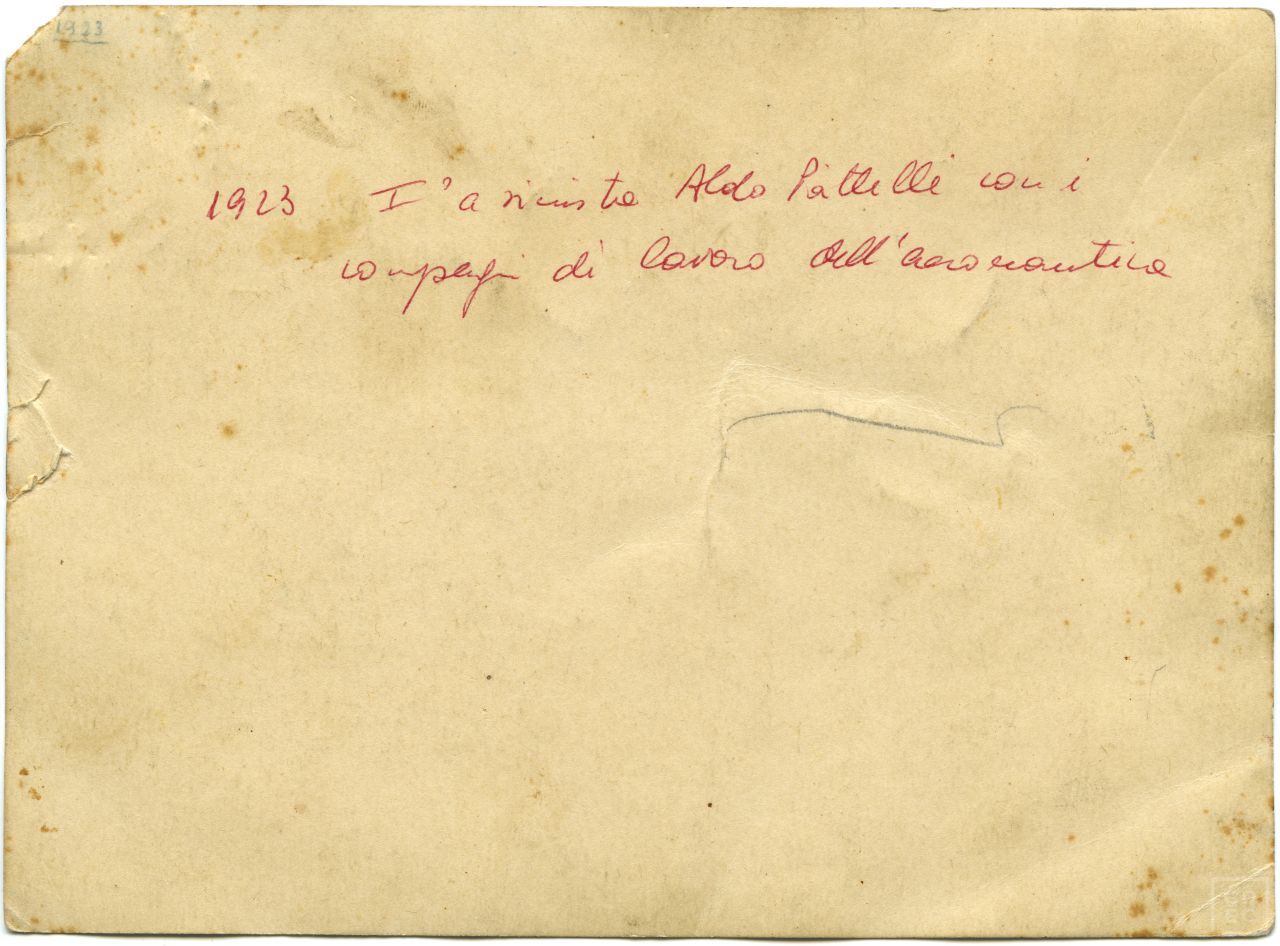 1923
1923 I° a sinistra Aldo Pattelli con i
compagni di lavoro dell'aeronautica